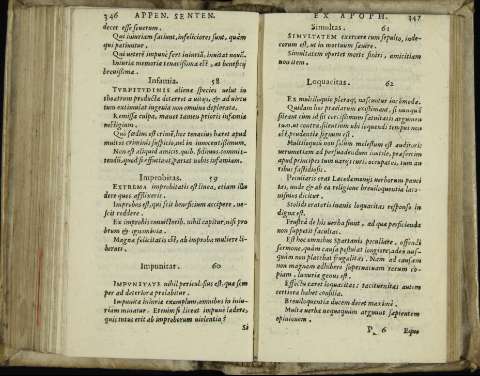 346 APPEN. SENTEN.
decet esse seuerum.
Qui iniuriam faciunt, infeliciores sunt, quàm
qui patiuntur.
Qui veterē impunè fert iniuriā, inuitat nouā.
Iniuriæ memoria tenacissima est, at beneficij
breuissima.
Infamia. 58
TVRPITVDINIS alienæ species velut in
theatrum producta deterret a vitijs, & ad virtu
tum extimulat ingenia non omnino deplorata.
Remissa culpa, manet tamen prioris infamia
Qui semel est
multos criminis suspicio, nel in innocentissimum.
Non est alicui amicis, quib. filium commit-
Improbitas. 59
EXTREMA improbitatis est linea, etiam illu
dere quos afflixerit.
Improbus est, qui scit beneficium accipere, ne-
scit reddere.
Ex improbi conuictorib. nihil capitur, nisi pro
brum & ignominia.
Magna felicitatis est, ab improba muliere li-
berari.
Impunitas. 60
IMPVNITATE nihil periculosius est, quæ sem
per ad deteriora prolabitur.
Impunita iniuriæ exemplum, omnibus in iniu-
riam minatur. Etenim si liceat impunè lædere,
quis tutus erit ab improborum violentia?
Si
EX APOPH. 347
Simultas. 61
SIMVLTATEM exercere cum sepulto, inde-
corum est, ut in mortuum sæuire.
Simultatem oportet morte finiri, amicitiam
non item.
Loquacitas. 62
Ex multiloquio pleraque nascuntur incōmoda.
Quidam hoc præclarum existimant, si nunquā
sileant cùm id sit certissimum fatuitatis argumen
tum, ut contra, silentium ubi loquendi tempus non
est, prudentiæ signum est.
Multiloquiū non solùm molestum est auditori:
verumetiam ad persuadendum inutile, præsertim
apud principes tum varijs curis occupatos, tum au
ribus fastidiosis.
Peculiaris erat Lacedæmonijs verborum parsi
tas, unde & ab ea religione breuiloquentia laco-
nismus dicitur.
Stolidi oratoris inanis loquacitas responso in
digna est.
Frustra de his verba fiunt, ad quæ perficienda
non suppetit facultas.
Est hoc omnibus Spartanis peculiare, offendi
sermone, quàm causa postulat longiore, adeo nus-
quàm non placebat frugalitas. Nam ad causam
non magnam adhibere superuacuam rerum co-
piam, luxuriæ genus est.
Effectu caret loquacitas: taciturnitas autem
certiora habet consilia.
Breuiloquentia ducem decet maximè.
Multa verba nequaquàm arguunt sapientem
opinionem.
P 6 Eques